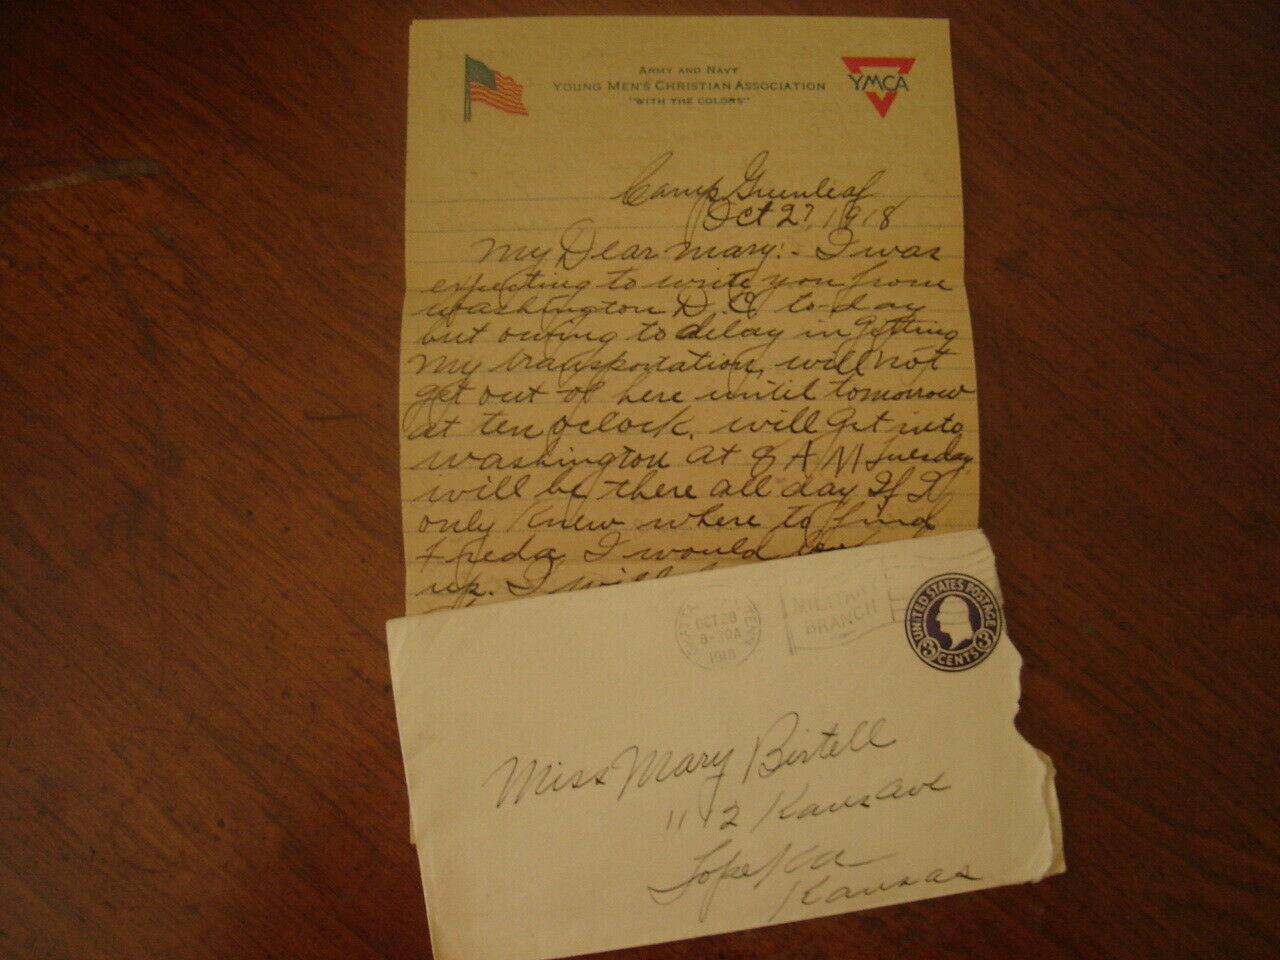 ARMY AND NAVY
YOUNG MEN'S CHRISTIAN ASSOCIATION
"WITH THE COLORS"
YMCA
Camp Greenleaf
Oct 27, 1918
My Dear Mary:- I was
expecting to write you from
Washington D.C. to-day
but owing to delay in getting
my transportation, will not
get out of here until tomorrow
at ten oclock. will get into
Washington at 8 AM Tuesday
will be there all day If I
only knew where to find
Freda I would
up. I will
OCT 28
8-30A
1918
MILITARY
BRANCH
UNITED STATES POSTAGE
3 CENTS 3
Miss Mary Birtell
1112 Kans Ave
Topeka
Kansas